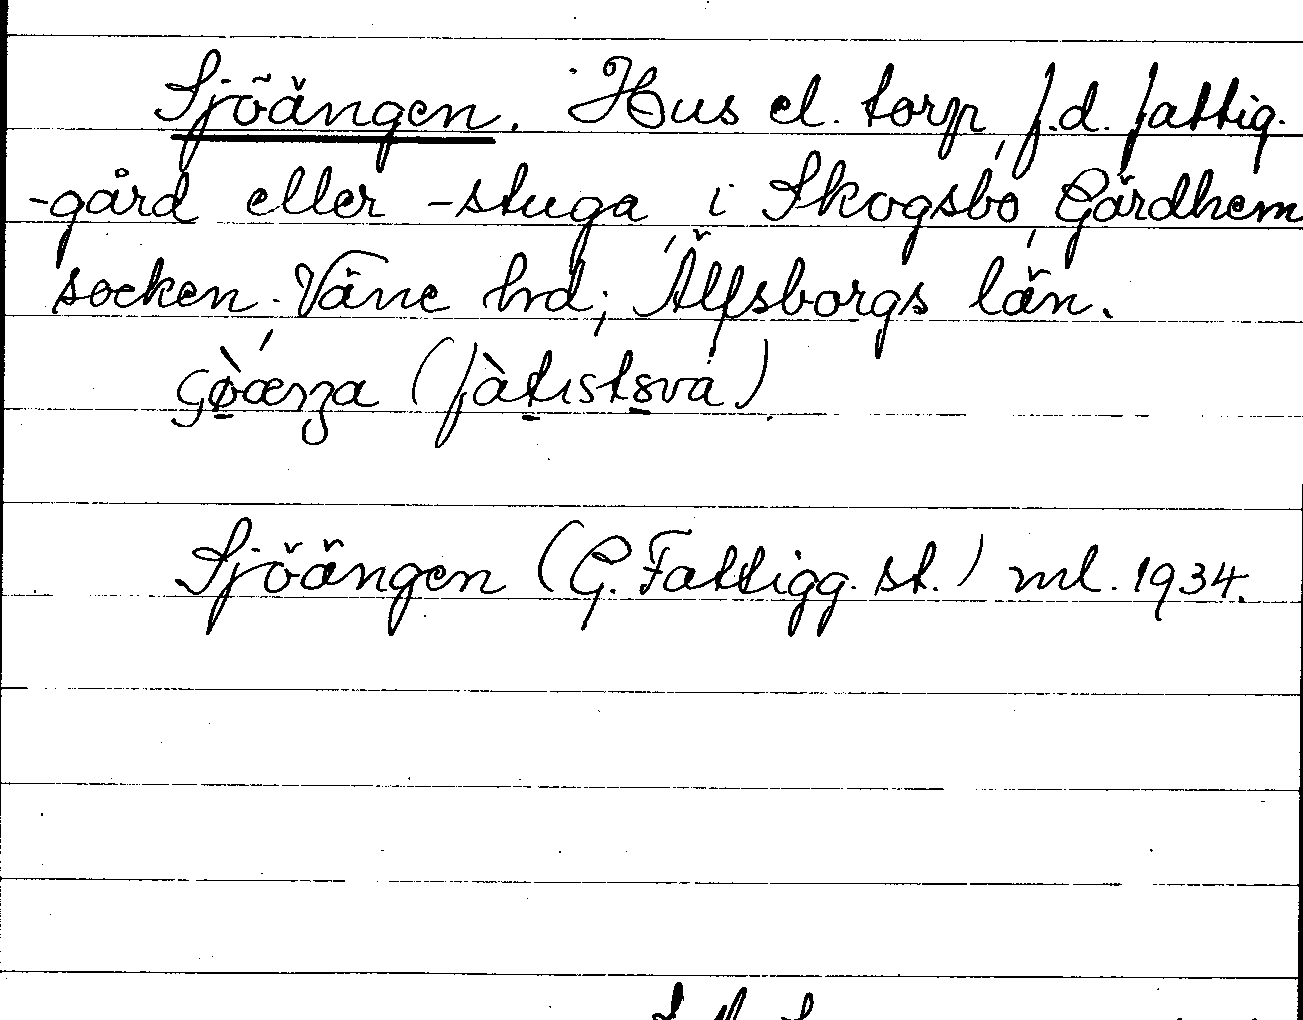 Sjöängen. Hus el. torp, f.d. fattig-
-gård eller -stuga, i Skogsbo, Gärdhem
socken. Väne hd; Älfsborgs län.
Sjöängen (G. Fattigg. st.) ml. 1934.